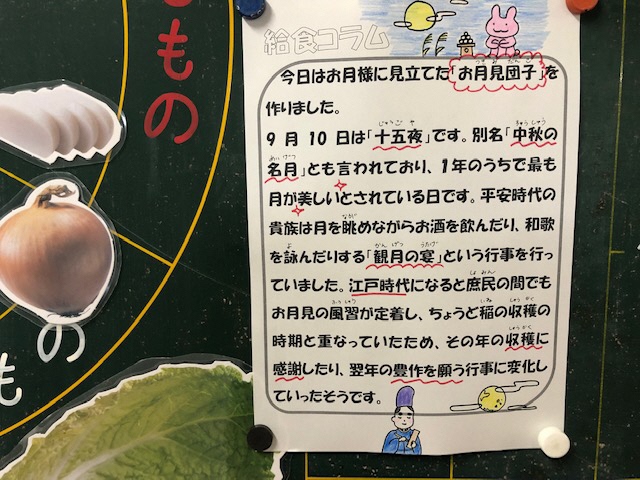 給食コラム
今日はお月様に見立てた「お月見団子」を
作りました。
9月10日は「十五夜」です。別名「中秋の
名月」とも言われており、1年のうちで最も
月が美しいとされている日です。平安時代の
貴族は月を眺めながらお酒を飲んだり、和歌
を詠んだりする「観月の宴」という行事を行っ
ていました。江戸時代になると庶民の間でも
お月見の風習が定着し、ちょうど稲の収穫の
時期と重なっていたため、その年の収穫に
感謝したり、翌年の豊作を願う行事に変化し
ていったそうです。
もの
の
も